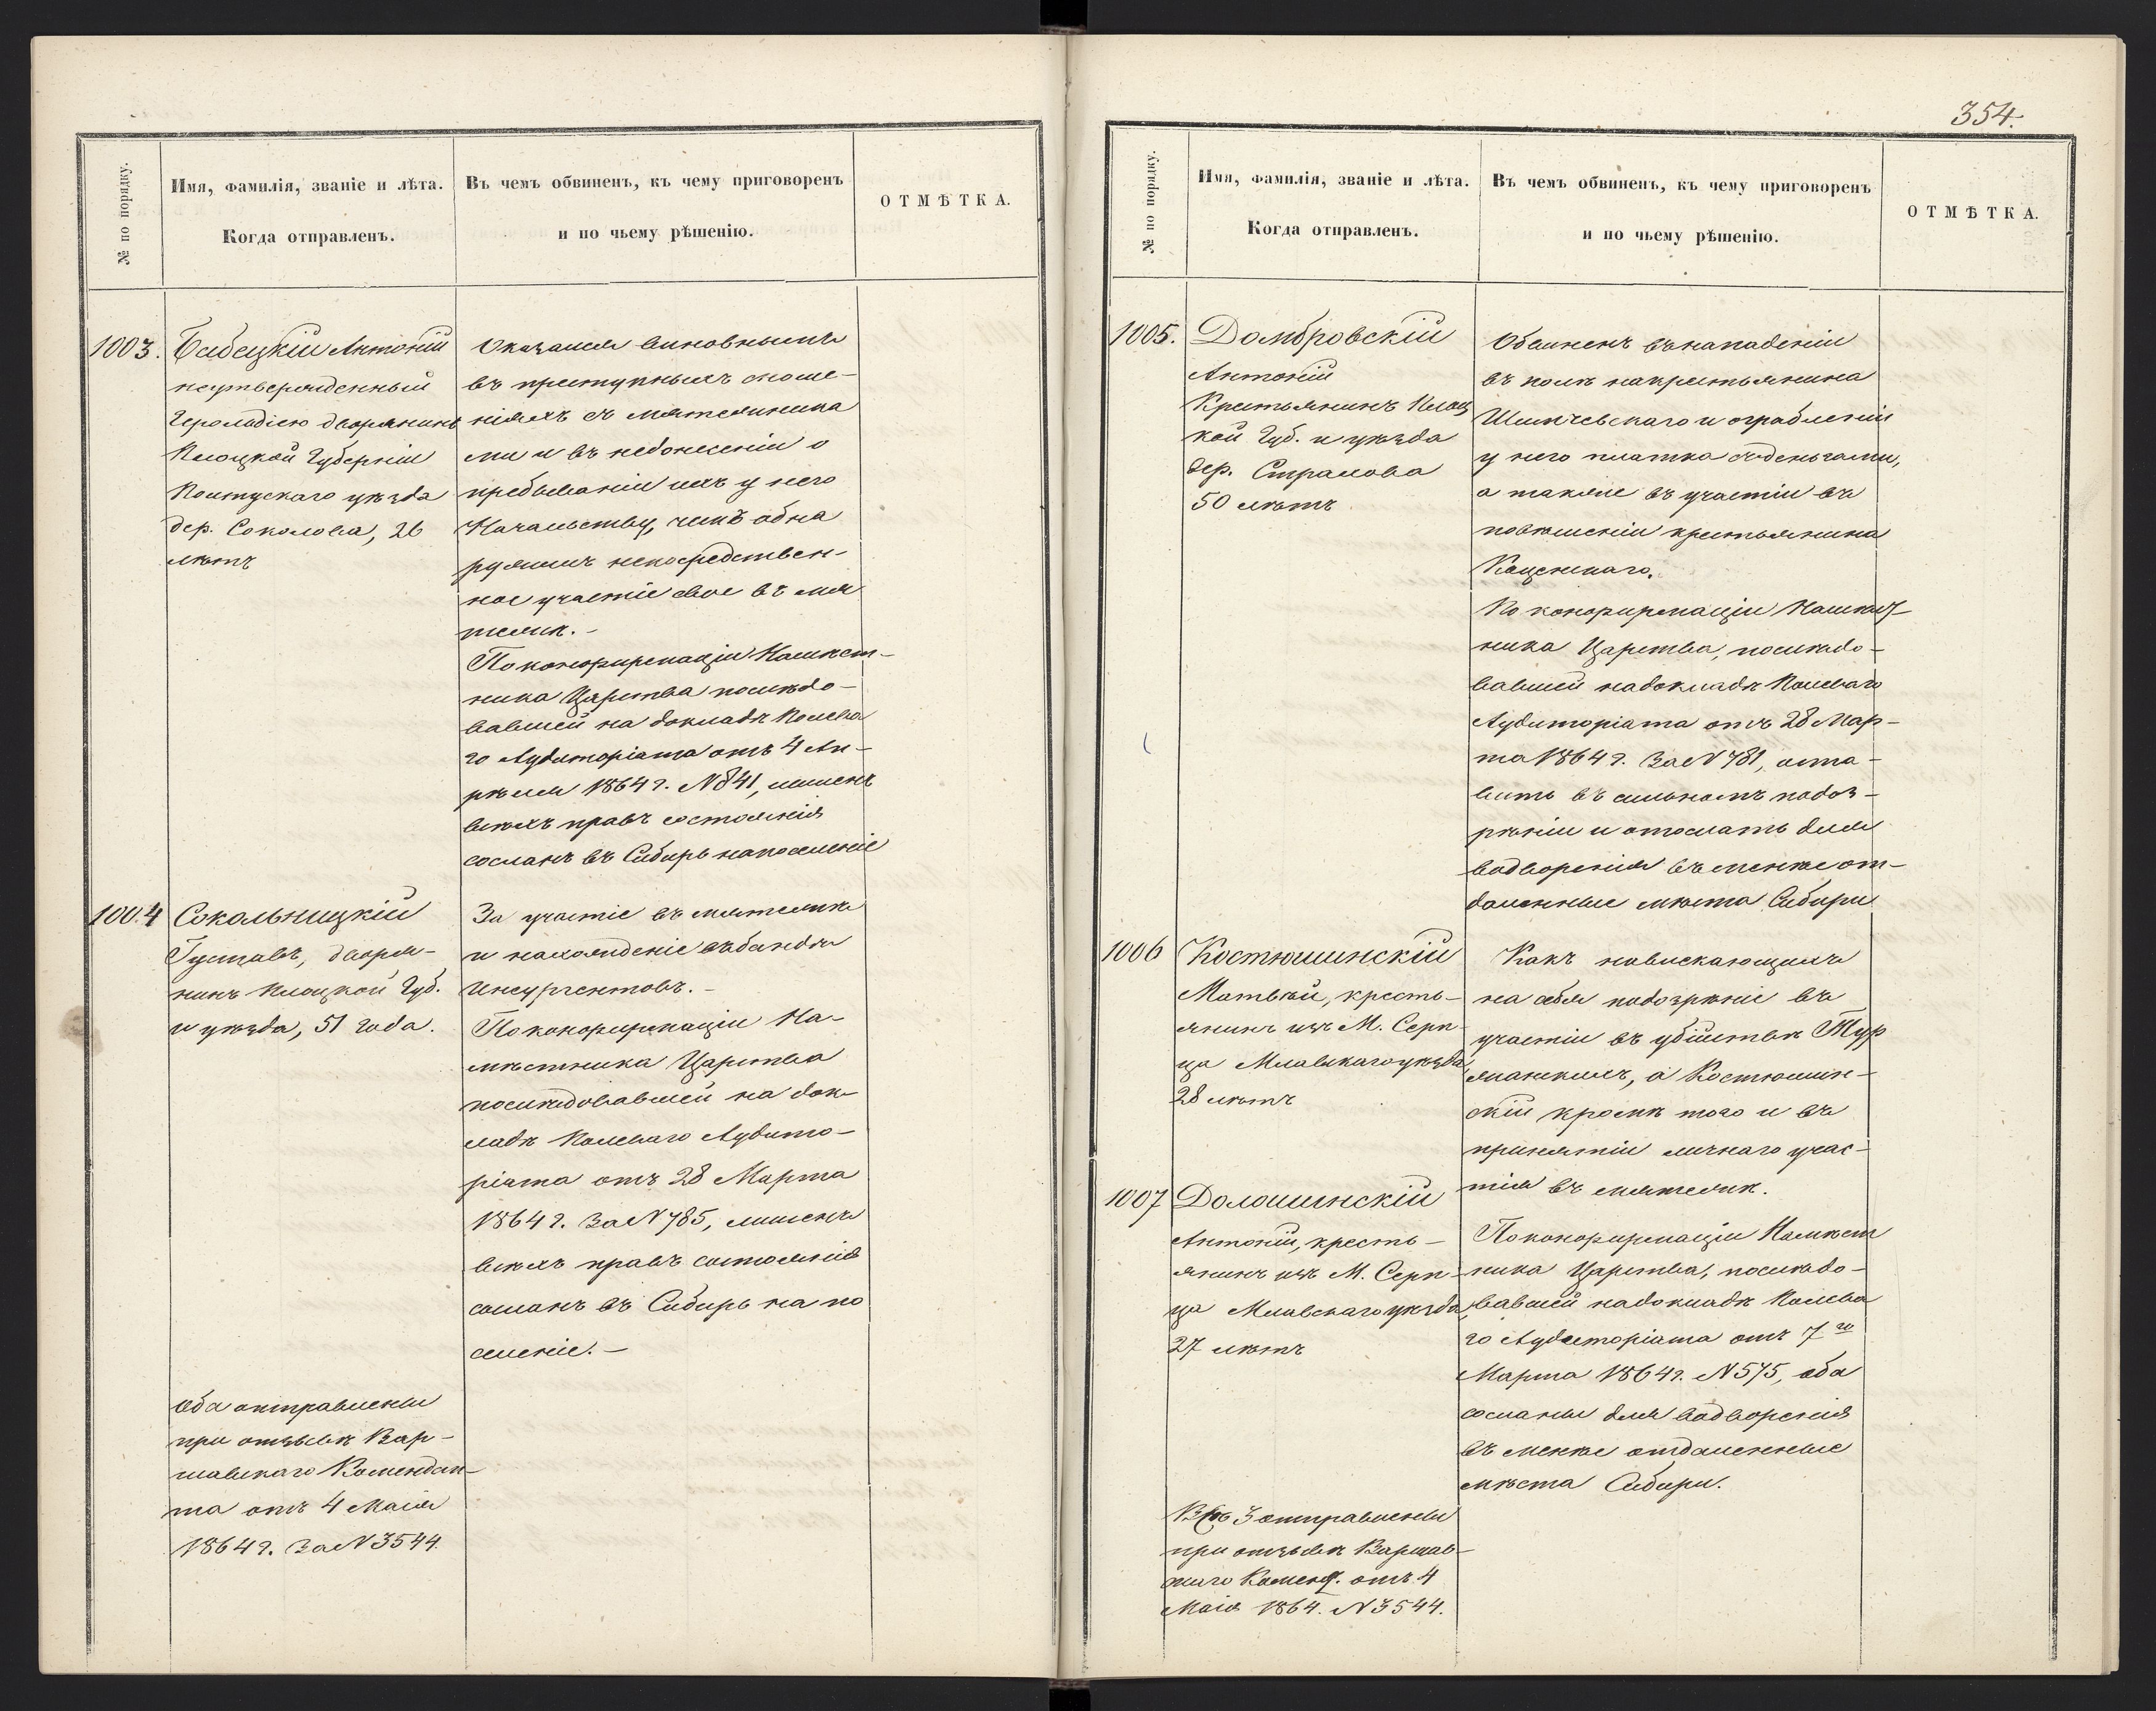 354.
№ по порядку.
Имя, фамилія, званіе и лѣта.
Когда отправленъ.
Въ чемъ обвиненъ, къ чему приговоренъ
и по чьему рѣшенію.
ОТМѢТКА.
1003.
Бабецкій Антоній
неутвержденный
Герольдіею дворянинъ
Плоцкой Губерніи
Полтускаго уѣзда
дер. Соколова, 26
лѣтъ
Оказался виновнымъ
въ преступныхъ сноше-
ніяхъ съ мятежника
ми и въ недонесеніи о
пребываніи ихъ у него
Начальству, чемъ обна
ружилъ непосредствен-
ное участіе свое въ мя
тежѣ.-
По конфирмаціи Намѣст-
ника Царства послѣдо-
вавшей на докладѣ Полева
го Аудиторіата отъ 4 Ап-
рѣля 1864 г. №841, лишенъ
всѣхъ правъ состоянія
сосланъ въ Сибирь на поселеніе
1004
Сокольницкій
Густавъ, дворя-
нинъ Плоцкой Губ.
и уѣзда, 51 года.
За участіе въ мятежѣ
и нахожденіе въ бандѣ
Инсургентовъ.-
По конфирмаціи На-
мѣстника Царства
послѣдовавшей на док-
ладѣ Полеваго Аудито-
ріата отъ 28 Марта
1864 г. за №785, лишенъ
всѣхъ правъ состоянія
сосланъ въ Сибирь на по
селеніе.-
Оба отправлены
при отзывѣ Вар-
шавскаго Комендан-
та отъ 4 Маія
1864 г. за №3544.
№ по порядку.
Имя, фамилія, званіе и лѣта.
Когда отправленъ.
Въ чемъ обвиненъ, къ чему приговоренъ
и по чьему рѣшенію.
ОТМѢТКА.
1005.
Домбровскій
Антоній
Крестьянинъ Плоц
кой Губ. и уѣзда
дер. Страхова
50 лѣтъ
Обвиненъ въ нападеніи
въ полѣ на крестьянина
Шимчевскаго и ограбленіи
у него платка съ деньгами,
а также въ участіи въ
повѣшеніи крестьянина
По конфирмаціи Намѣст-
ника Царства, послѣдо-
вавшей на докладѣ Полеваго
Аудиторіата отъ 28 Мар-
та 1864 г. за №781, оста-
вить въ сильномъ подоз-
рѣніи и отослать для
водворенія въ менѣе от-
даленные мѣста Сибири
1006
Костюшинскій
Матвѣй, кресть-
янинъ изъ М. Серп-
ца Млавскаго уѣзда
28 лѣтъ
Какъ навлекающихъ
на себя подозрѣніе въ
участіи въ убійствѣ Тур
манскихъ, а Костюшин-
скій кромѣ того и въ
принятіи личнаго учас-
тія въ мятежѣ.
1007
Долошинскій
Антоній, кресть-
янинъ изъ М. Серп-
ца Млавскаго уѣзда,
27 лѣтъ
По конфирмаціи Намѣст
ника Царства, послѣдо-
вавшей на докладѣ Полева
го Аудиторіата отъ 7го
Марта 1864 г. №575, оба
сосланы для водворенія
въ менѣе отдаленные
мѣста Сибири.
Всѣ 3 отправлены
при отзывѣ Варшав-
скаго Коменд. отъ 4
Маія 1864. №3544.